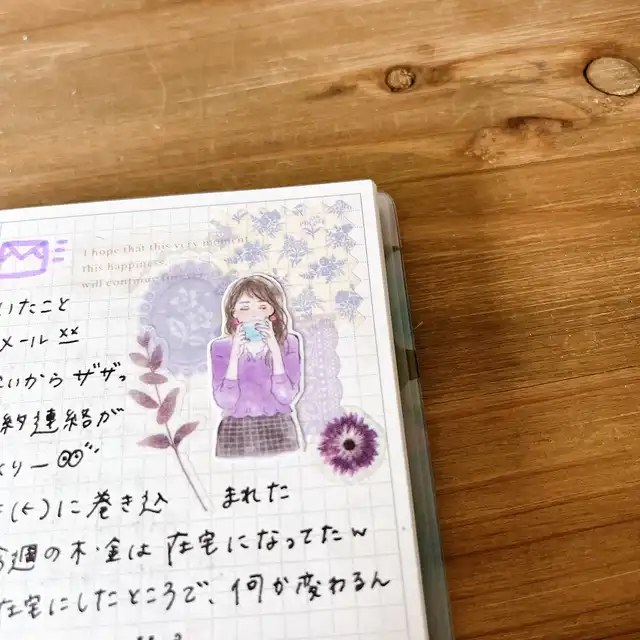 I hope that this very moment
this happiness
will continue forever
いたこと
メール
いから ザザッ
納連絡が
に巻き込 まれた
今週の木・金は在宅になってたw
在宅にしたところで、何か変わるん